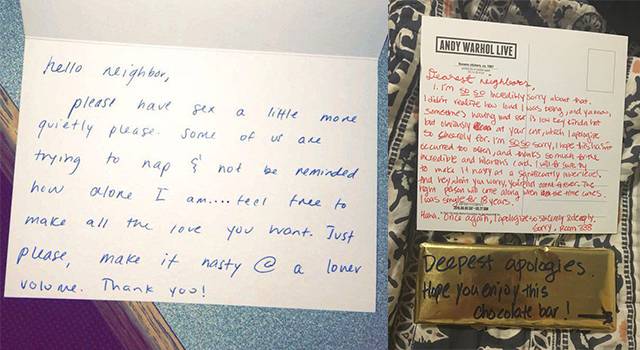 hello neighbor,
please have sex a little more
quietly please. Some of us are
trying to nap & not be reminded
how alone I am.... feel free to
make all the love you want. Just
please, make it nasty @ a lower
volume. Thank you!
ANDY WARHOL LIVE
Dearest neighbor,
1. I'm so so incredibly sorry about that.
I didn't realize how loud I was being, and ya know,
someone's having our sex is low key kinda hot
but obviously at your cost, which I apologize
so sincerely for. I'm so so sorry, I hope this hasn't
occurred too often, and thanks so much for the
incredible and hilarious card. I will be sure try
to make it nasty at a significantly lower level,
and hey, don't you worry, you're not alone forever. The
right person will come along when the time comes.
I was single for 18 years.
Haha. Once again, I apologize so sincerely & deeply.
Sorry, Room 338
Deepest apologies.
Hope you enjoy this
chocolate bar!